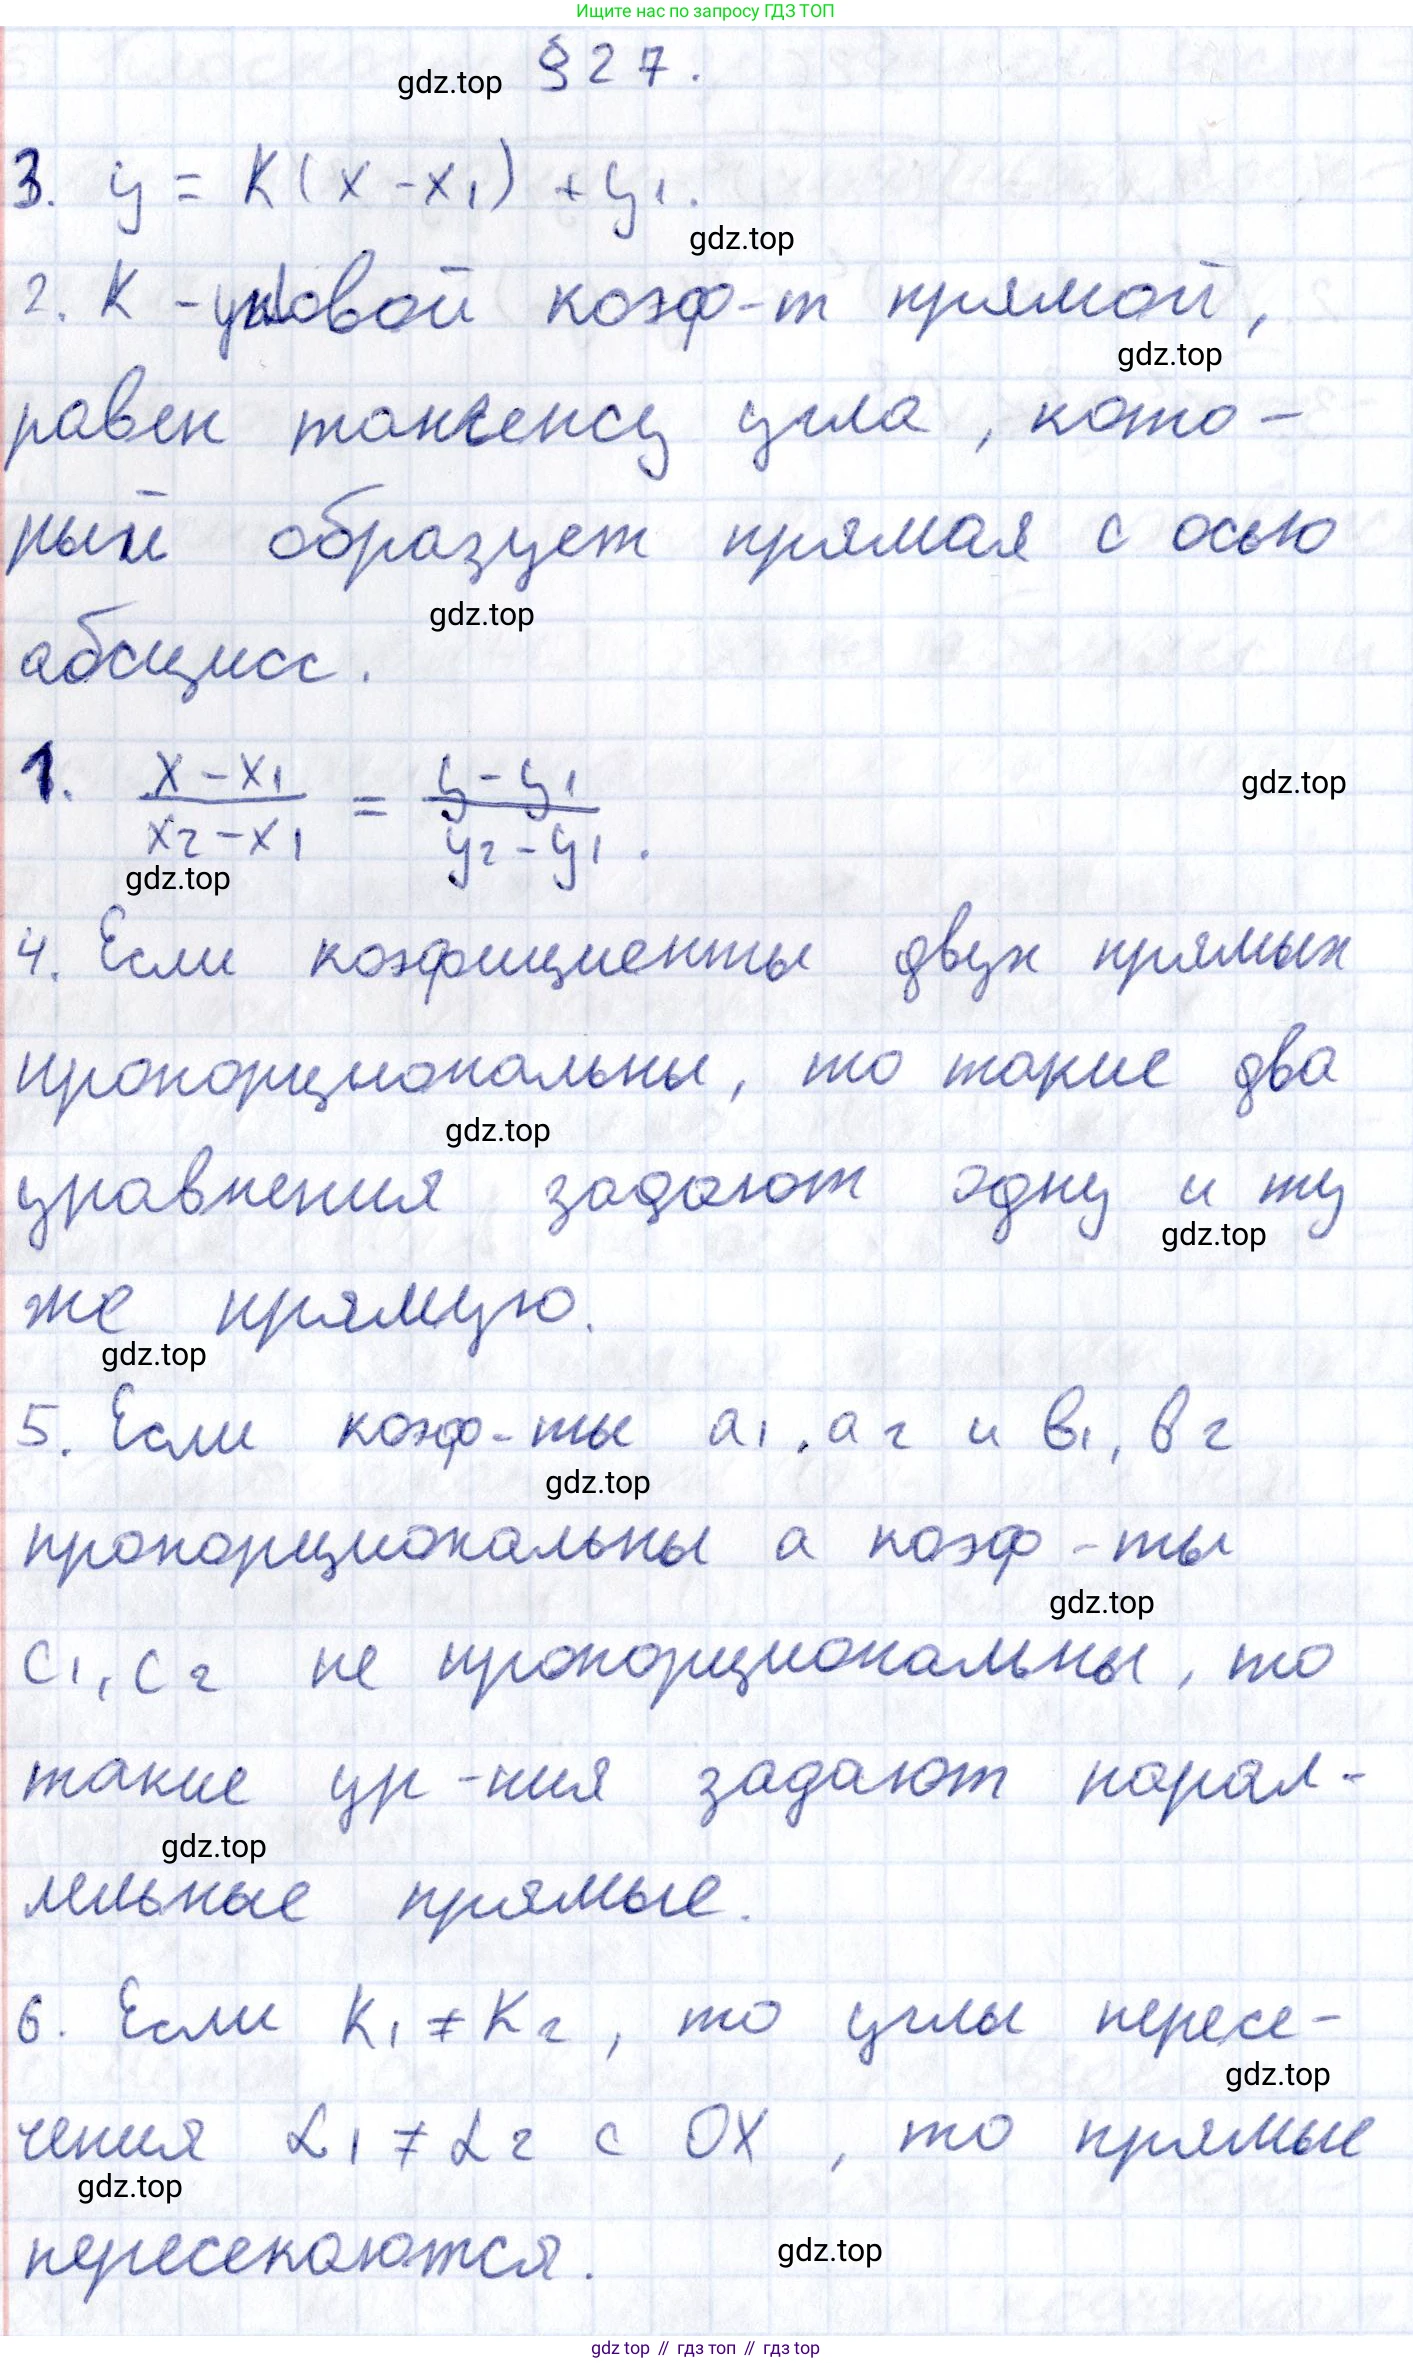 Ищите нас по запросу ГДЗ ТОП
§ 27.
gdz.top
3. y = K(x - x₁) + y₁.
gdz.top
2. K - угловой коэф-т прямой,
gdz.top
равен тангенсу угла, кото-
рый образует прямая с осью
gdz.top
абсцисс.
1. (x - x₁)/(x₂ - x₁) = (y - y₁)/(y₂ - y₁).
gdz.top
gdz.top
4. Если коэфициенты двух прямых
пропорциональны, то такие два
gdz.top
уравнения задают одну и ту
gdz.top
же прямую.
gdz.top
5. Если коэф-ты a₁, a₂ и в₁, в₂
gdz.top
пропорциональны а коэф-ты
gdz.top
c₁, c₂ не пропорциональны, то
такие ур-ния задают парал-
gdz.top
лельные прямые.
6. Если K₁ ≠ K₂, то углы пересе-
gdz.top
чения α₁ ≠ α₂ с OX, то прямые
gdz.top
пересекаются.
gdz.top
gdz top // гдз топ // гдз top